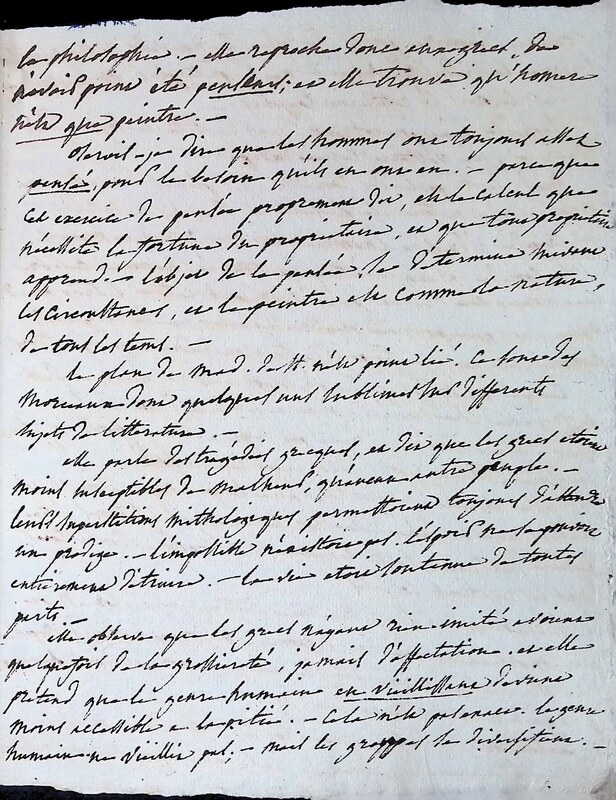 la philosophie. — elle reproche donc aux grecs, de
n'avoir point été penseurs; et elle trouve qu'homere
n'est que peintre. —
oserois-je dire que les hommes ont toujours assez
pensé, pour le besoin qu'ils en ont eu. — parce que
cet exercice de pensée proprement dit, est le calcul que
nécessite la fortune du propriétaire, et que tout propriétaire
apprend. — l'objet de la pensée, se détermine suivant
les circonstances, et le peintre est comme la nature,
de tous les tems. —
le plan de mad. de St. n'est point lié. Ce sont des
morceaux dont quelques uns sublimes sur differents
sujets de litterature. —
elle parle des tragédies grecques, et dit que les grecs étoient
moins susceptibles de malheur, qu'aucun autre peuple. —
leurs superstitions mithologiques permettoient toujours d'attendre
un prodige. — l'impossible n'existoit pas. L'espoir ne se pouvoit
entierement détruire. — la vie etoit soutenue de toutes
parts. —
elle observe que les grecs n'ayant rien imité avoient
quelquefois de la grossiereté, jamais d'affectation. et elle
prétend que le genre humain en vieillissant devient
moins accessible a la pitié. — Cela n'est pas exact. le genre
humain ne vieillit pas; — mais les grouppes se diversifient. —